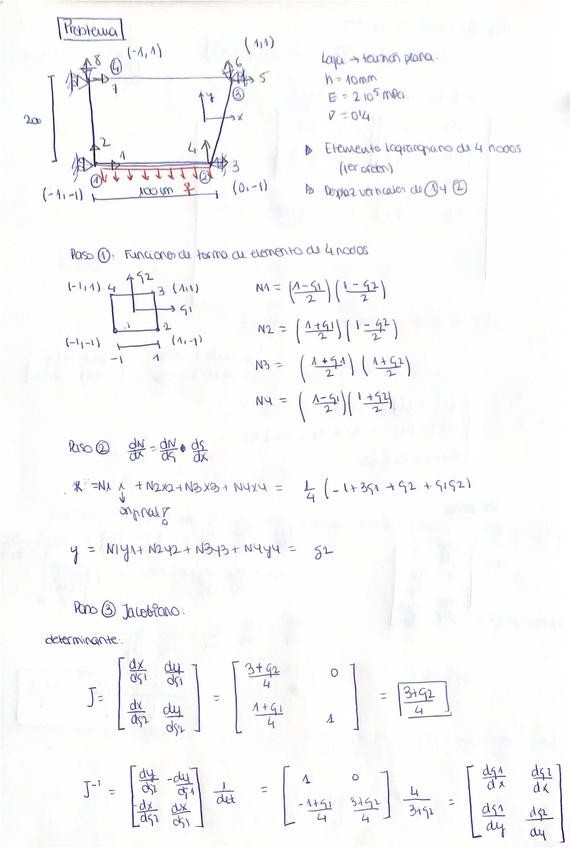 Problema
(-1,1)
(1,1)
8
4
6
7
5
3
200
y
x
2
1
4
3
1
2
q
(-1,-1)
100 cm
(0,-1)
Laja → tensión plana.
h = 10mm
E = 2 10⁵ mpa.
ν = 0'4
▷ Elemento lagrangiano de 4 nodos
(1er orden)
▷ Desplaz verticales de ① y ②
Paso ①: Funciones de forma de elemento de 4 nodos
(-1,1) 4 ς2 3 (1,1)
ς1
(-1,-1) 1 2 (1,-1)
-1 1
N1 = ((1-ς1)/2) ((1-ς2)/2)
N2 = ((1+ς1)/2) ((1-ς2)/2)
N3 = ((1+ς1)/2) ((1+ς2)/2)
N4 = ((1-ς1)/2) ((1+ς2)/2)
Paso ② dN/dx = dN/dς · dς/dx
x = N1 x + N2x2 + N3x3 + N4x4 = 1/4 (-1+3ς1 + ς2 + ς1ς2)
original
y = N1y1 + N2y2 + N3y3 + N4y4 = ς2
Paso ③ Jacobiano:
determinante:
J = [dx/dς1 dy/dς1; dx/dς2 dy/dς2] = [(3+ς2)/4 0; (1+ς1)/4 1] = (3+ς2)/4
J⁻¹ = [dy/dς2 -dy/dς1; -dx/dς2 dx/dς1] 1/det = [1 0; (-1+ς1)/4 (3+ς2)/4] 4/(3+ς2) = [dς1/dx dς2/dx; dς1/dy dς2/dy]